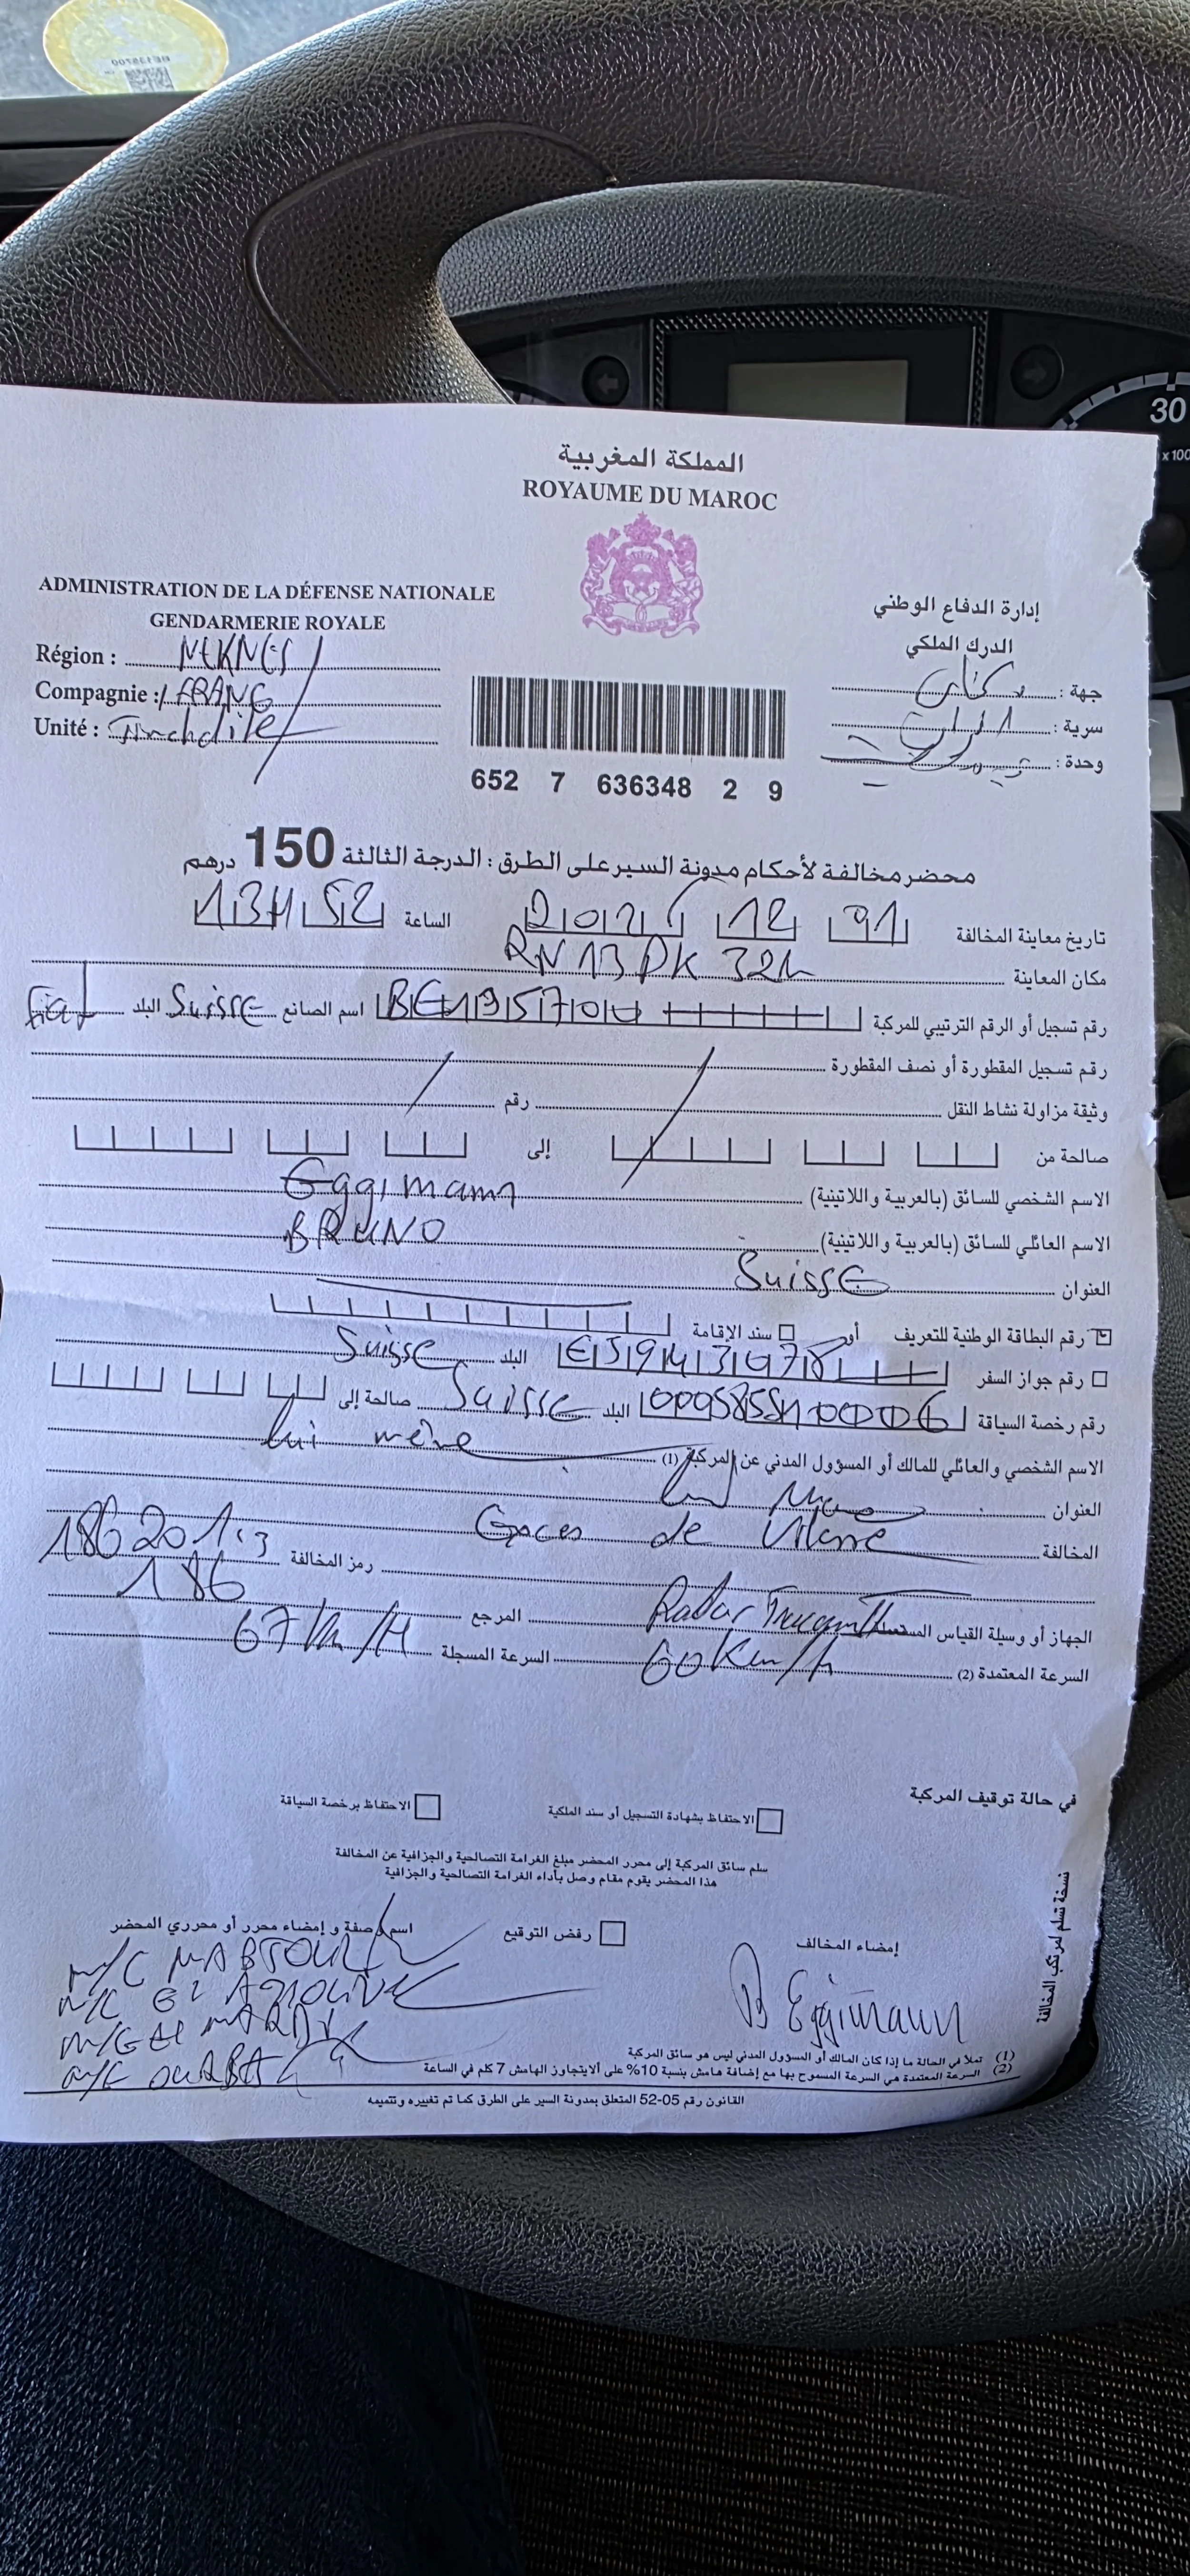 المملكة المغربية
ROYAUME DU MAROC
ADMINISTRATION DE LA DÉFENSE NATIONALE
GENDARMERIE ROYALE
إدارة الدفاع الوطني
الدرك الملكي
Région : MEKNES
جهة :
Compagnie :
سرية :
Unité : Timahdite
وحدة :
652 7 636348 2 9
محضر مخالفة لأحكام مدونة السير على الطرق : الدرجة الثالثة 150 درهم
تاريخ معاينة المخالفة الساعة 13H52
مكان المعاينة RN13 PK
رقم تسجيل أو الرقم الترتيبي للمركبة اسم الصانع Suisse البلد Fiat
رقم تسجيل المقطورة أو نصف المقطورة
وثيقة مزاولة نشاط النقل رقم
صالحة من إلى
الاسم الشخصي للسائق (بالعربية واللاتينية) Eggimann
الاسم العائلي للسائق (بالعربية واللاتينية) BRUNO
العنوان Suisse
رقم البطاقة الوطنية للتعريف أو سند الإقامة
رقم جواز السفر البلد Suisse
رقم رخصة السياقة البلد Suisse صالحة إلى
الاسم الشخصي والعائلي للمالك أو المسؤول المدني عن المركبة (1) lui même
العنوان
المخالفة de
رمز المخالفة
الجهاز أو وسيلة القياس Radar المرجع 186
السرعة المعتمدة (2) 60 Km/h السرعة المسجلة 67 Km/H
في حالة توقيف المركبة
الاحتفاظ بشهادة التسجيل أو سند الملكية
الاحتفاظ برخصة السياقة
سلم سائق المركبة إلى محرر المحضر مبلغ الغرامة التصالحية والجزافية عن المخالفة
هذا المحضر يقوم مقام وصل بأداء الغرامة التصالحية والجزافية
إمضاء المخالف
رفض التوقيع
اسم وصفة و إمضاء محرر أو محرري المحضر
B Eggimann
نسخة تسلم لمرتكب المخالفة
(1) تملأ في الحالة ما إذا كان المالك أو المسؤول المدني ليس هو سائق المركبة
(2) السرعة المعتمدة هي السرعة المسموح بها مع إضافة هامش بنسبة 10% على ألا يتجاوز الهامش 7 كلم في الساعة
القانون رقم 05-52 المتعلق بمدونة السير على الطرق كما تم تغييره وتتميمه
30
x100